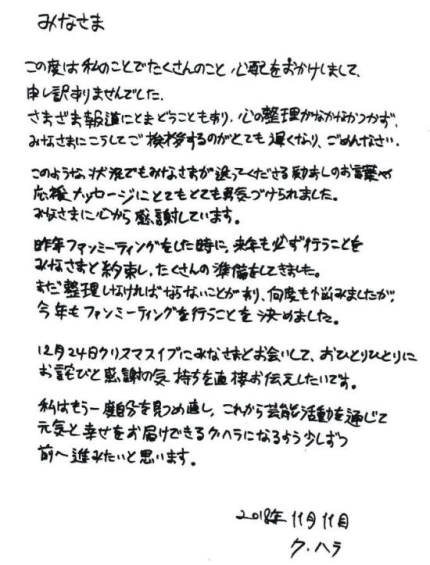 みなさま
この度は私のことでたくさんのこと心配をおかけしまして、
申し訳ありませんでした。
さまざま報道にとまどうこともあり、心の整理がなかなかつかず、
みなさまにこうしてご挨拶するのがとても遅くなり、ごめんなさい。
このような状況でもみなさまが送ってくださる励ましのお言葉や
応援メッセージにとてもとても勇気づけられました。
みなさまに心から感謝しています。
昨年ファンミーティングをした時に、来年も必ず行うことを
みなさまと約束し、たくさんの準備をしてきました。
まだ整理しなければならないことがあり、何度も悩みましたが、
今年もファンミーティングを行うことを決めました。
12月24日クリスマスイブにみなさまとお会いして、おひとりひとりに
お詫びと感謝の気持ちを直接お伝えしたいです。
私はもう一度自分を見つめ直し、これから芸能活動を通じて
元気と幸せをお届けできるクハラになるよう少しずつ
前へ進みたいと思います。
2018年11月11日
ク・ハラ